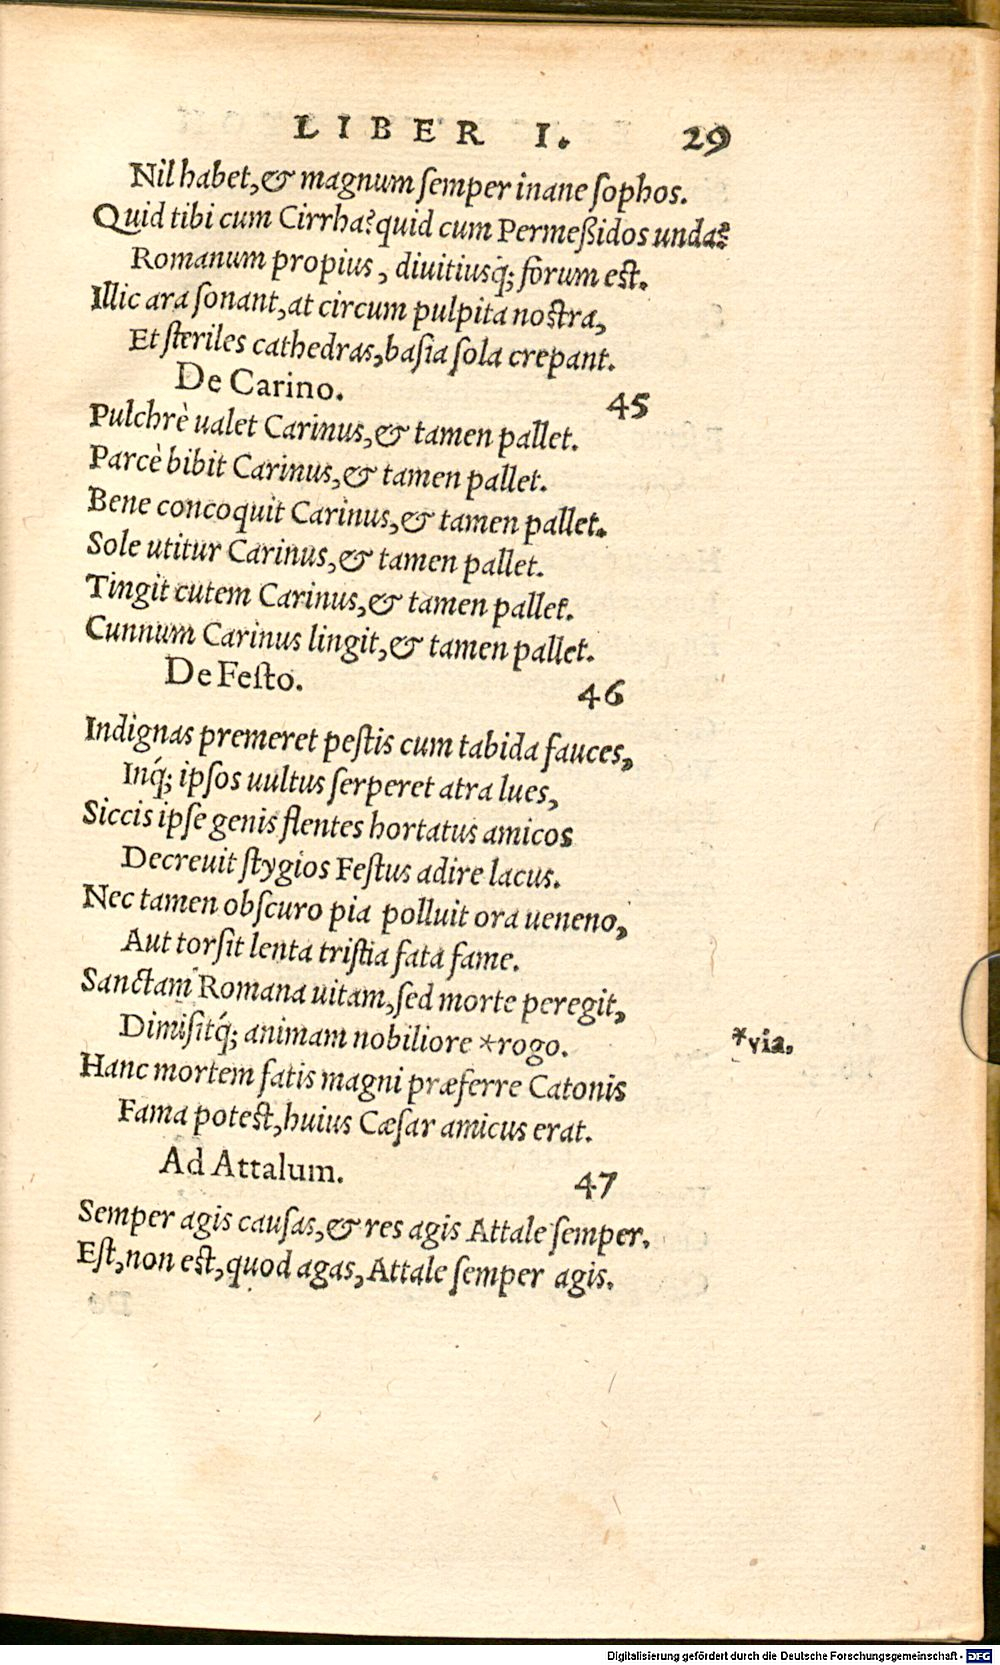 LIBER I. 29
Nil habet, & magnum ſemper inane ſophos.
Quid tibi cum Cirrha? quid cum Permeßidos unda?
Romanum propius, diuitiusq́; forum est.
Illic æra ſonant, at circum pulpita nostra,
Et ſteriles cathedras, baſia ſola crepant.
De Carino. 45
Pulchrè ualet Carinus, & tamen pallet.
Parcè bibit Carinus, & tamen pallet.
Bene concoquit Carinus, & tamen pallet.
Sole utitur Carinus, & tamen pallet.
Tingit cutem Carinus, & tamen pallet.
Cunnum Carinus lingit, & tamen pallet.
De Feſto. 46
Indignas premeret peſtis cum tabida fauces,
Inq́; ipſos uultus ſerperet atra lues,
Siccis ipſe genis flentes hortatus amicos
Decreuit ſtygios Feſtus adire lacus.
Nec tamen obſcuro pia polluit ora ueneno,
Aut torſit lenta triſtia fata fame.
Sanctam Romana uitam, ſed morte peregit,
Dimiſitq́; animam nobiliore *rogo. *via.
Hanc mortem fatis magni præferre Catonis
Fama potest, huius Cæſar amicus erat.
Ad Attalum. 47
Semper agis cauſas, & res agis Attale ſemper.
Eſt, non est, quod agas, Attale ſemper agis.
Digitalisierung gefördert durch die Deutsche Forschungsgemeinschaft - DFG